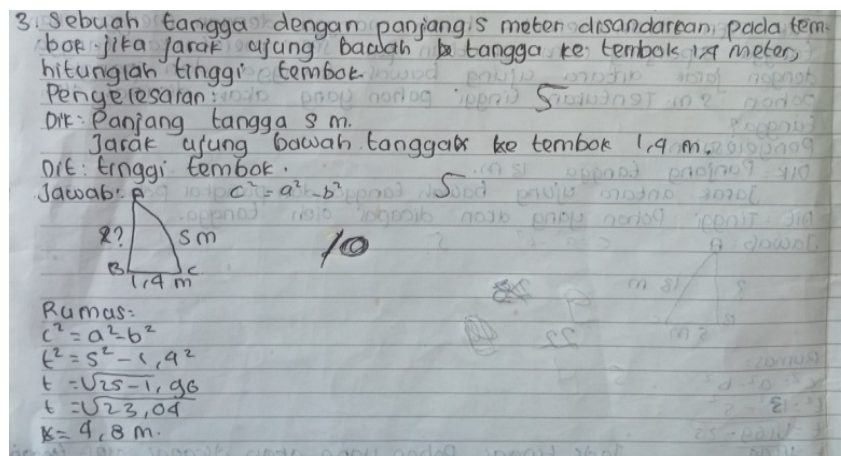 3. Sebuah tangga dengan panjang 5 meter disandarkan pada tem-
bok jika jarak ujung bawah tangga ke tembok 1,4 meter,
hitunglah tinggi tembok.
Penyelesaian: 5
Dik: Panjang tangga 5 m.
Jarak ujung bawah tangga ke tembok 1,4 m.
Dit: tinggi tembok.
Jawab: A c² = a² - b² 5
? 5 m 10
B C
1,4 m
Rumus:
c² = a² - b²
t² = 5² - 1,4²
t = √25 - 1,96
t = √23,04
= 4,8 m.